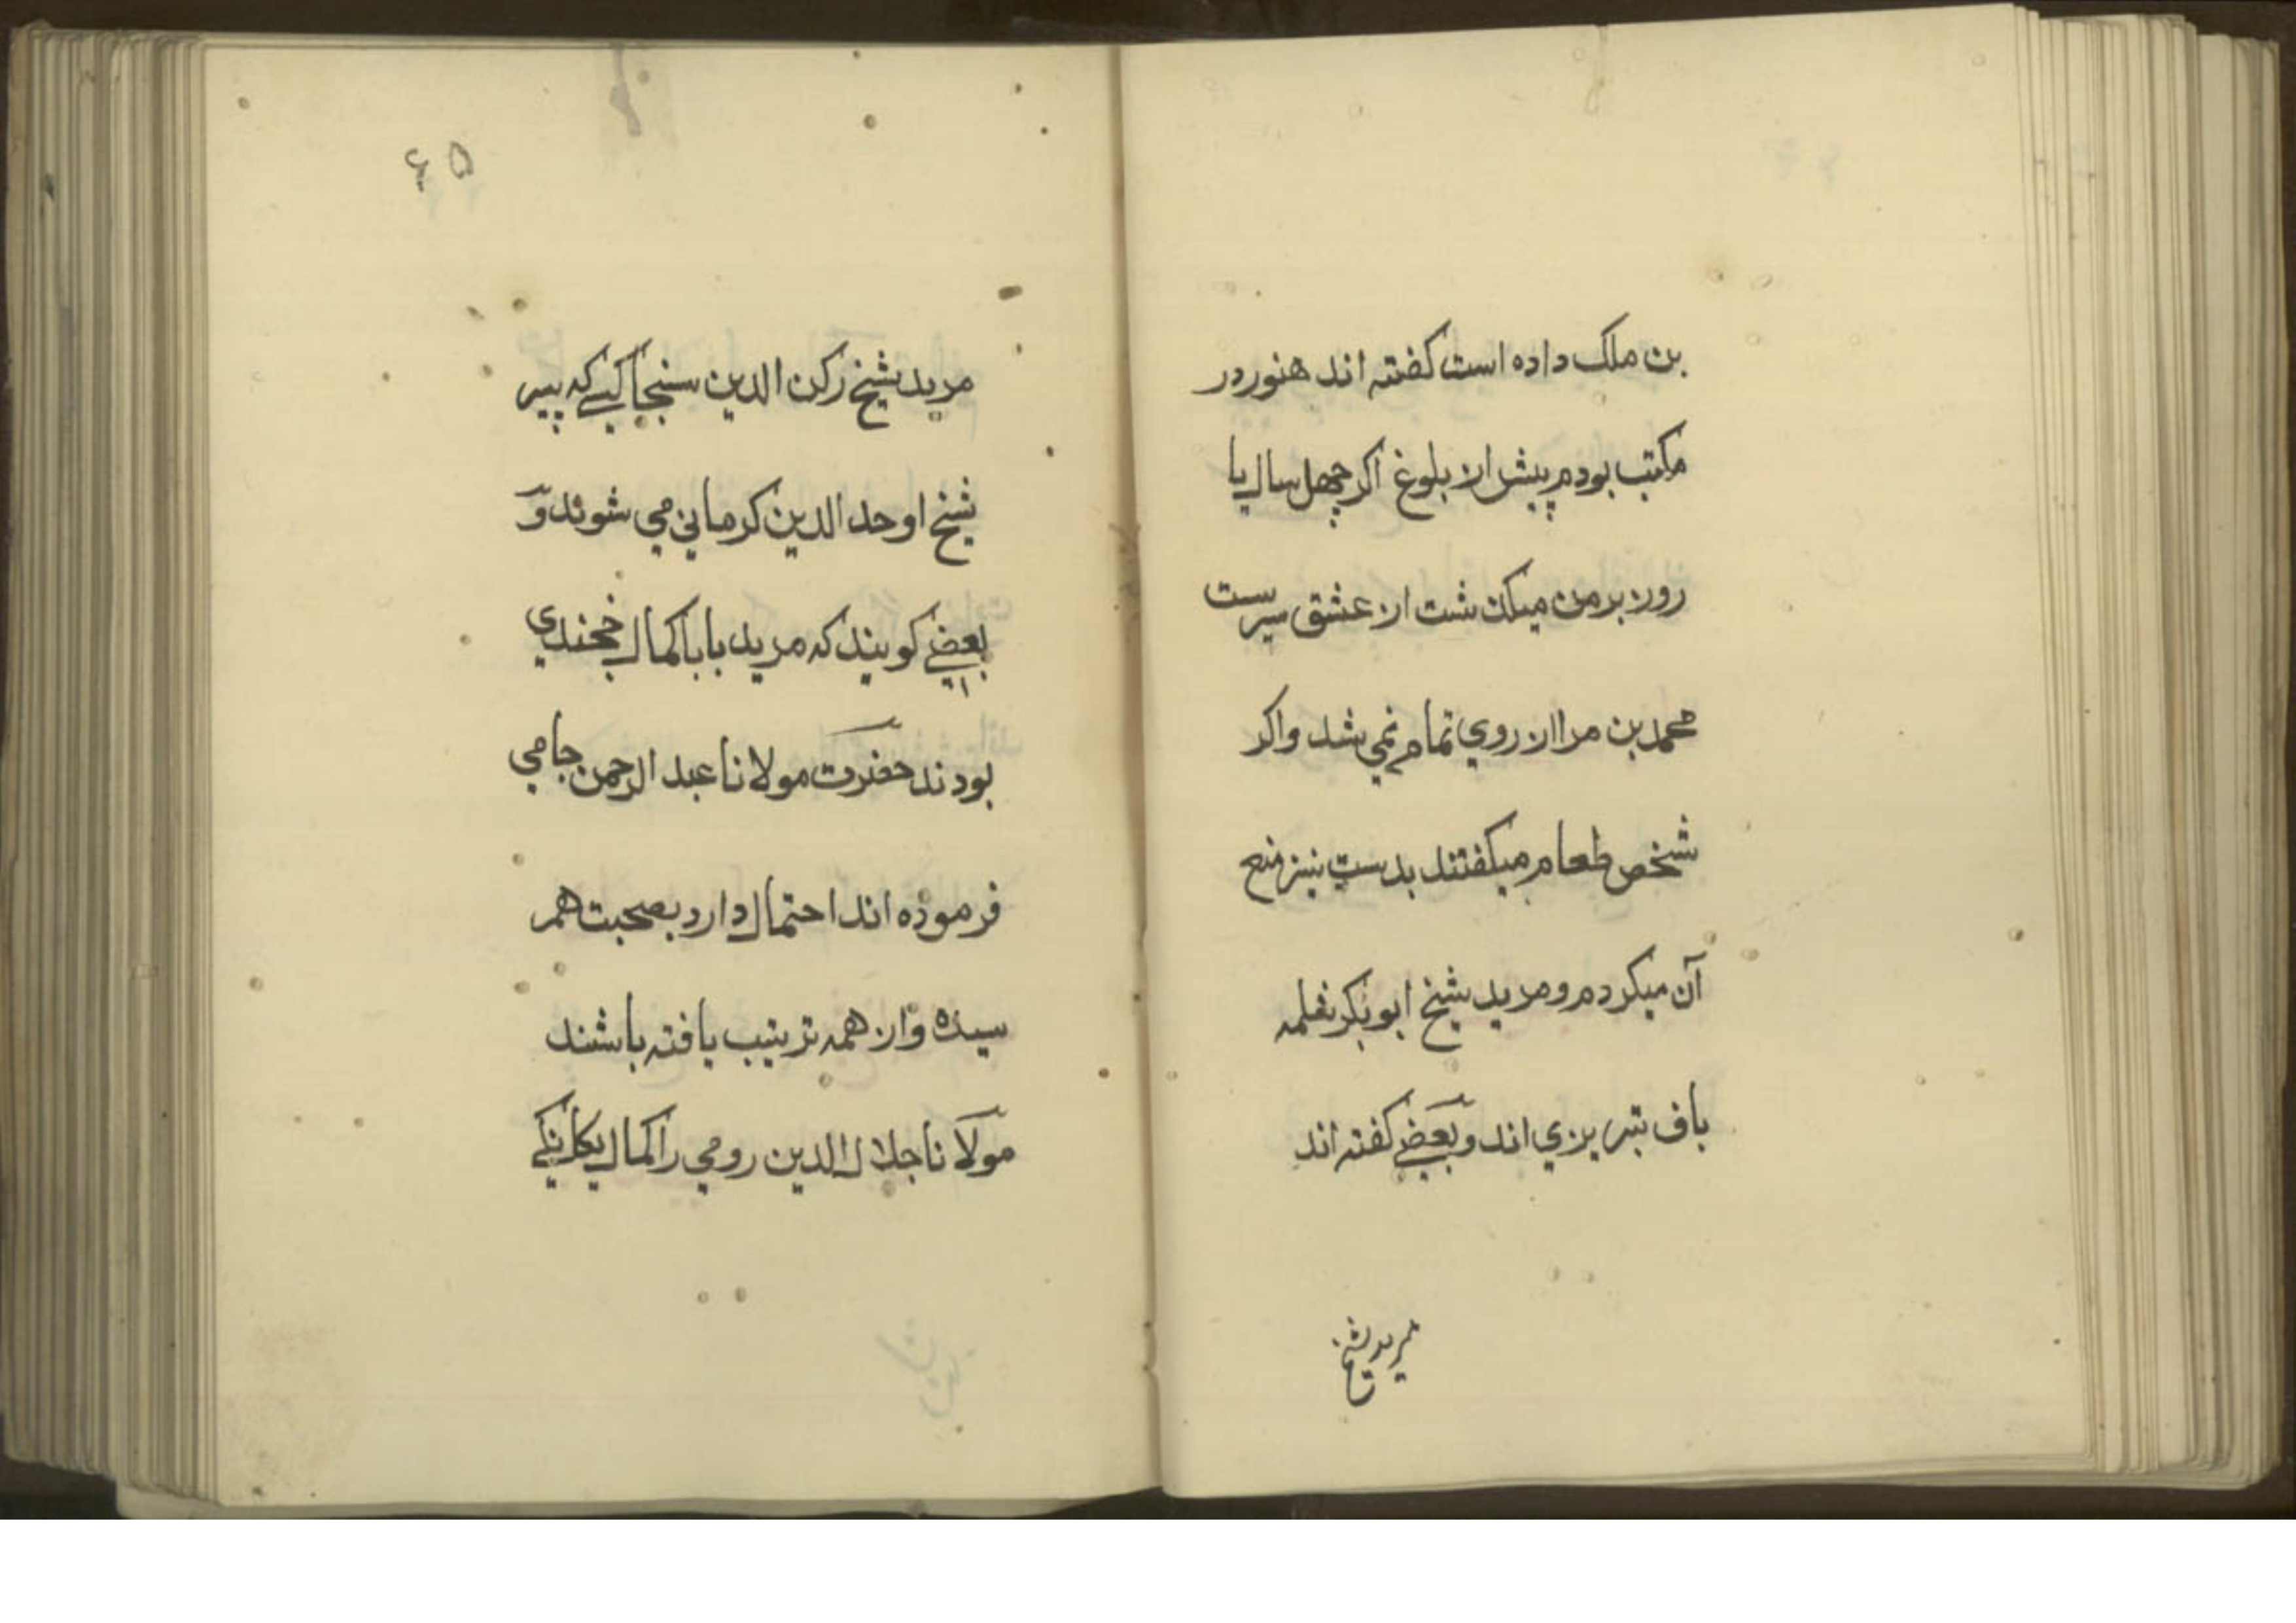 بن ملک داده است کفته اند هنور در
مکتب بودم پیش از بلوغ اکر چهل سال یا
روز بر من میکذشت از عشق سیرست
محمد بن مرا از روی تمام نمی شد واکر
شخص طعام میکفتند بدست نیز منع
آن میکردم و مرید شیخ ابوبکر نقلمه
باف تبریزی اند و بعضے کفته اند
مرید شیخ
۶۵
مرید شیخ رکن الدین سنجاکیے که پیر
شیخ اوحد الدین کرمانی می شوند و
بعضے کویند که مرید بابا کمال خجندی
بودند حضرت مولانا عبد الرحمن جامی
فرموده اند احتمال دارد بصحبت همر
سیده واز همه ترتیب یافته باشند
مولانا جلال الدین رومی را کمال یکانکے